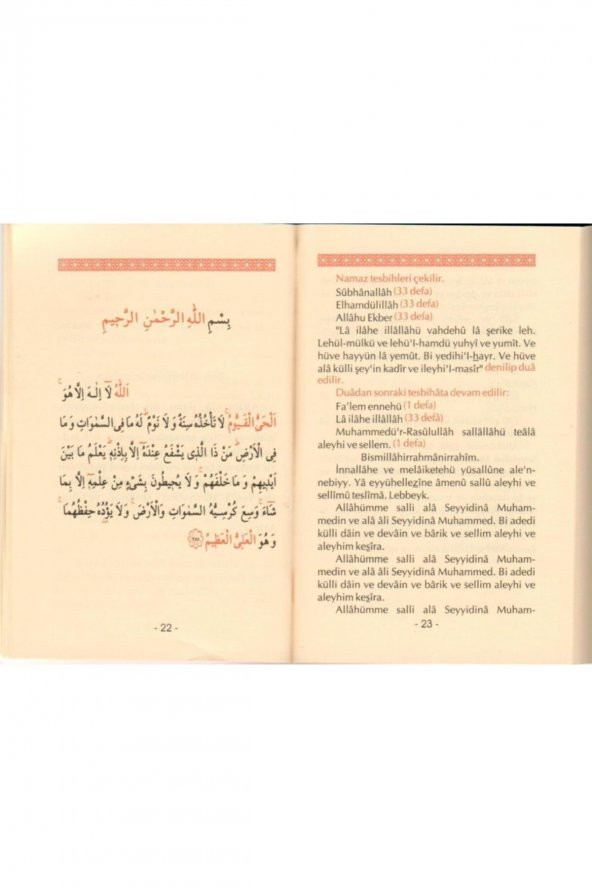 بِسْمِ اللّٰهِ الرَّحْمٰنِ الرَّحٖيمِ
اَللّٰهُ لَٓا اِلٰهَ اِلَّا هُوَۚ
اَلْحَيُّ الْقَيُّومُۚ لَا تَأْخُذُهُ سِنَةٌ وَلَا نَوْمٌؕ لَهُ مَا فِى السَّمٰوَاتِ وَمَا
فِى الْاَرْضِؕ مَنْ ذَا الَّذٖى يَشْفَعُ عِنْدَهُٓ اِلَّا بِاِذْنِهٖؕ يَعْلَمُ مَا بَيْنَ
اَيْدٖيهِمْ وَمَا خَلْفَهُمْۚ وَلَا يُحٖيطُونَ بِشَىْءٍ مِنْ عِلْمِهٖٓ اِلَّا بِمَا
شَٓاءَۚ وَسِعَ كُرْسِيُّهُ السَّمٰوَاتِ وَالْاَرْضَۚ وَلَا يَؤُ۫دُهُ حِفْظُهُمَاۚ
وَهُوَ الْعَلِىُّ الْعَظٖيمُ ﴿٢٥٥﴾
- 22 -
Namaz tesbihleri çekilir.
Sûbhânallâh (33 defa)
Elhamdülillâh (33 defa)
Allâhu Ekber (33 defa)
"Lâ ilâhe illâllâhü vahdehû lâ şerike leh.
Lehül-mülkü ve lehü'l-hamdü yuhyî ve yumît. Ve
hüve hayyün lâ yemût. Bi yedihi'l-hayr. Ve hüve
alâ külli şey'in kadîr ve ileyhi'l-masîr" denilip duâ
edilir.
Duâdan sonraki tesbihâta devam edilir:
Fa'lem ennehü (1 defa)
Lâ ilâhe illâllâh (33 defâ)
Muhammedü'r-Rasûlullâh sallâllâhü teâlâ
aleyhi ve sellem. (1 defa)
Bismillâhirrahmânirrahîm.
İnnallahe ve melâiketehü yüsallûne ale'n-
nebiyy. Yâ eyyühellezîne âmenû sallû aleyhi ve
sellimû teslîmâ. Lebbeyk.
Allâhümme salli alâ Seyyidinâ Muham-
medin ve alâ âli Seyyidinâ Muhammed. Bi adedi
külli dâin ve devâin ve bârik ve sellim aleyhi ve
aleyhim keşîra.
Allâhümme salli alâ Seyyidinâ Muham-
medin ve alâ âli Seyyidinâ Muhammed. Bi adedi
külli dâin ve devâin ve bârik ve sellim aleyhi ve
aleyhim keşîra.
Allâhümme salli alâ Seyyidinâ Muham-
- 23 -